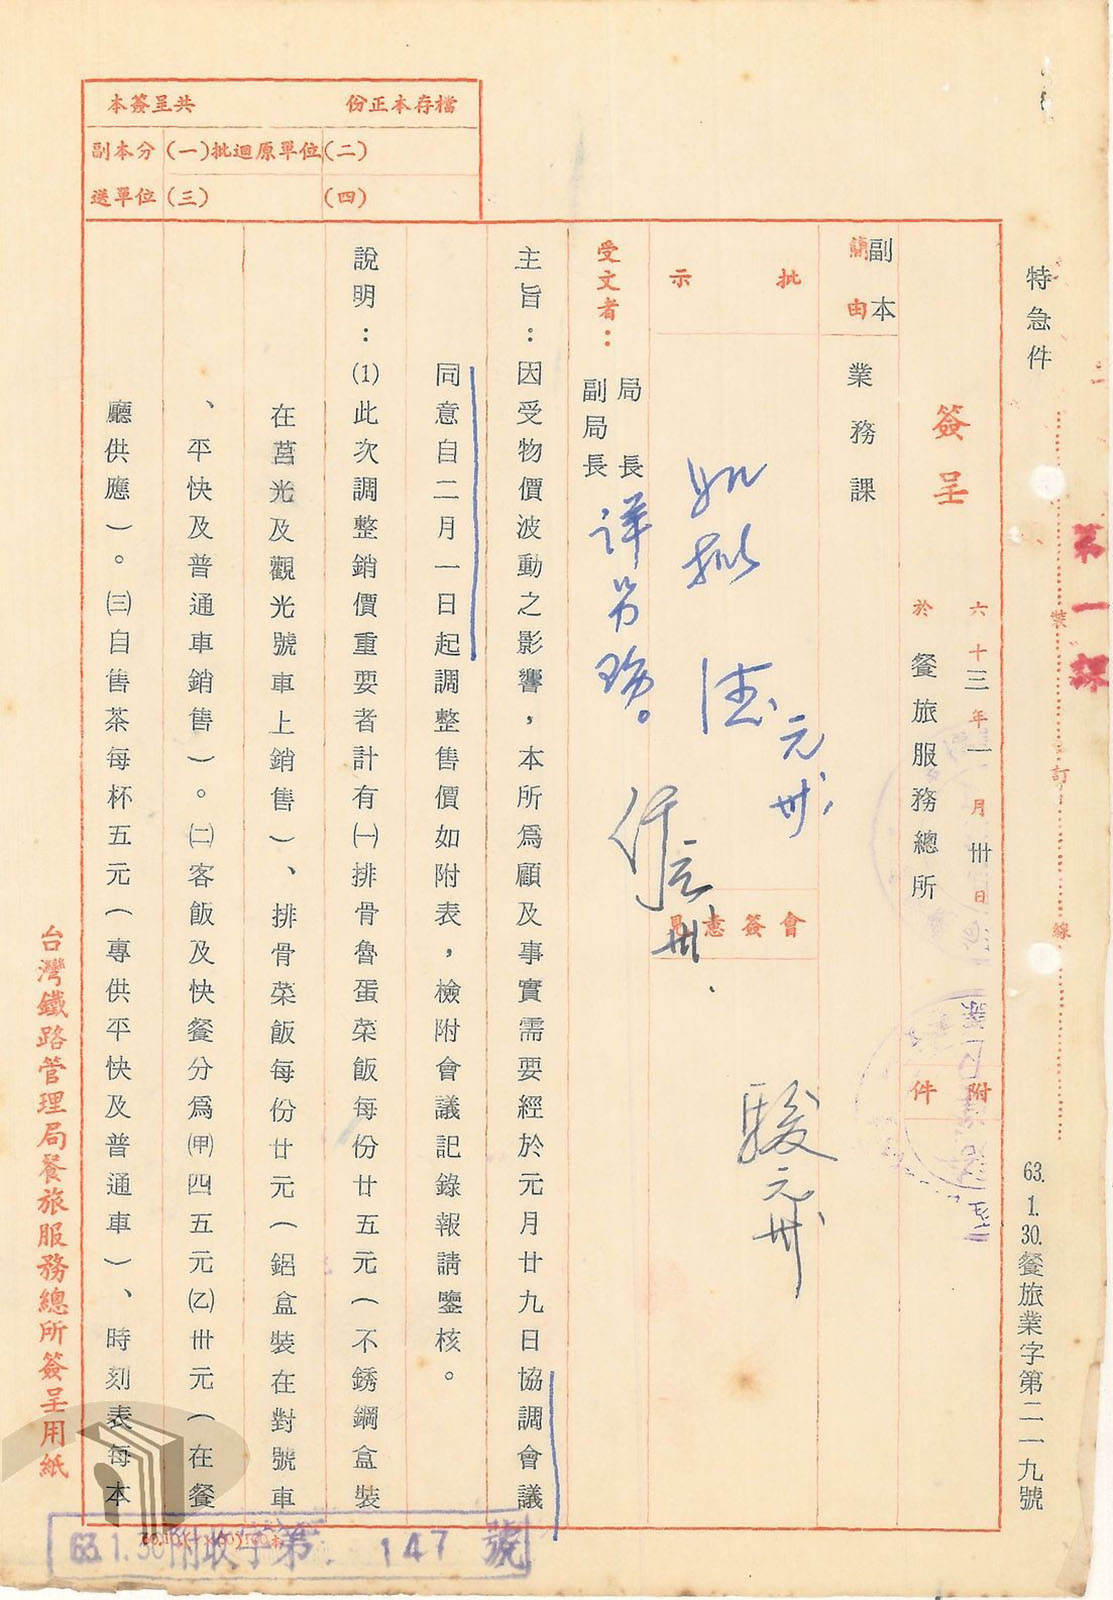 特急件
63.1.30.餐旅業字第二一九號
第一課
裝
訂
線
檔存本正份
共呈簽本
副本分送單位
(一)批迴原單位
(二)
(三)
(四)
簽呈
六十三年一月卅日
於餐旅服務總所
附件
副本
簡由
業務課
批示
如批
德元卅
會簽意見
駿元卅
受文者：
局長
副局長
詳另務。
主旨：因受物價波動之影響，本所為顧及事實需要經於元月廿九日協調會議
同意自二月一日起調整售價如附表，檢附會議記錄報請鑒核。
說明：(1)此次調整銷價重要者計有㈠排骨魯蛋菜飯每份廿五元(不銹鋼盒裝
在莒光及觀光號車上銷售)、排骨菜飯每份廿元(鋁盒裝在對號車
、平快及普通車銷售)。㈡客飯及快餐分為㈙四五元㈚卅元(在餐
廳供應)。㈢自售茶每杯五元(專供平快及普通車)、時刻表每本
台灣鐵路管理局餐旅服務總所簽呈用紙
63.1.30附收字第 147 號